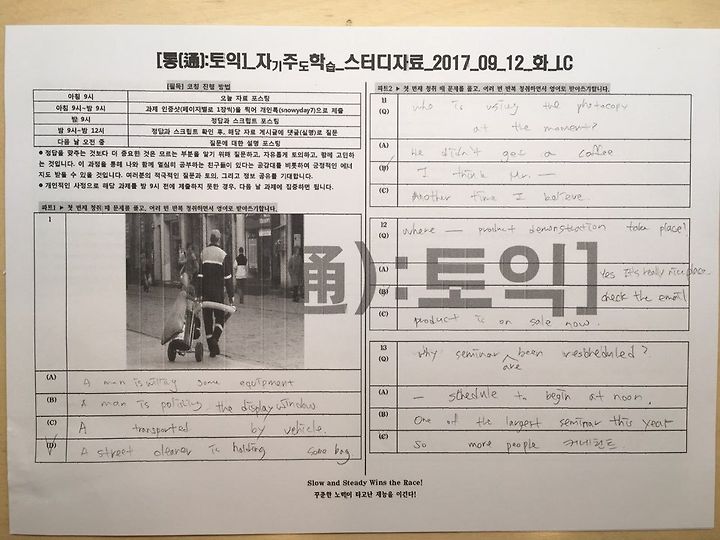 [통(通):토익]_자기주도학습_스터디자료_2017_09_12_화_LC
[필독] 코칭 진행 방법
아침 9시 오늘 자료 포스팅
아침 9시~밤 9시 과제 인증샷(페이지별로 1장씩)을 찍어 개인톡(snowyday7)으로 제출
밤 9시 정답과 스크립트 포스팅
밤 9시~밤 12시 정답과 스크립트 확인 후, 해당 자료 게시글에 댓글(실명)로 질문
다음 날 오전 중 질문에 대한 설명 포스팅
● 정답을 맞추는 것보다 더 중요한 것은 모르는 부분을 알기 위해 질문하고, 자유롭게 토의하고, 함께 고민하
는 것입니다. 이 과정을 통해 나와 함께 열심히 공부하는 친구들이 있다는 공감대를 비롯하여 긍정적인 에너
지도 받을 수 있을 것입니다. 여러분의 적극적인 질문과 토의, 그리고 정보 공유를 기대합니다.
● 개인적인 사정으로 해당 과제를 밤 9시 전에 제출하지 못한 경우, 다음 날 과제에 집중하면 됩니다.
파트1 ▶ 첫 번째 청취 때 문제를 풀고, 여러 번 반복 청취하면서 영어로 받아쓰기합니다.
1
通):토익]
(A) A man is some equipment
(B) A man is the display window
(C) A transported by vehicle.
(D) A street cleaner is holding some bag
파트2 ▶ 첫 번째 청취 때 문제를 풀고, 여러 번 반복 청취하면서 영어로 받아쓰기합니다.
11
(Q) who is using the photocopy
at the moment?
(A) He didn't got a coffee
(B) I think Mr. —
(C) Another time I believe
12
(Q) where — product demonstration take place?
(A) Yes It's really nice place.
(B) check the email
(C) product is on sale now.
13
(Q) why seminar been rescheduled?
are
(A) — schedule to begin at noon.
(B) One of the largest seminar this year
(C) So more people 커네린드.
Slow and Steady Wins the Race!
꾸준한 노력이 타고난 재능을 이긴다!